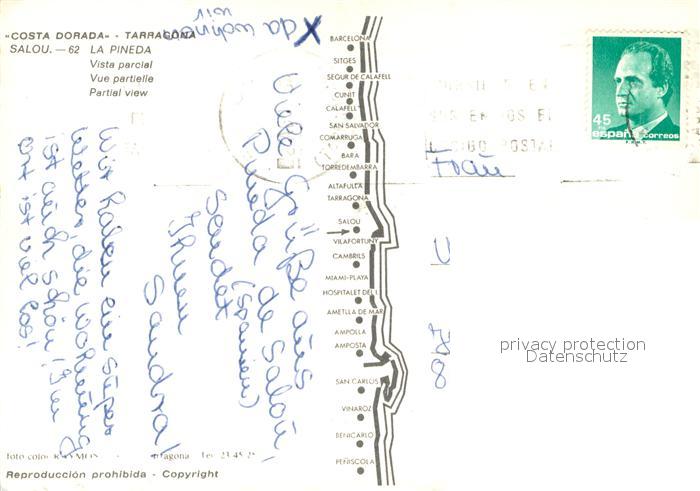 «COSTA DORADA» - TARRAGONA
SALOU. — 62 LA PINEDA
Vista parcial
Vue partielle
Partial view
X da wohnen
wir
Viele Grüße aus
Pineda de Salou!
(Spanien)
Sendet
Ihnen
Sandra!
Wir haben ein super
Wetter, die Wohnung
ist auch schön! Im
Ort ist viel los!
BARCELONA
SITGES
SEGUR DE CALAFELL
CUNIT
CALAFELL
SAN SALVADOR
COMARRUGA
BARA
TORREDEMBARRA
ALTAFULLA
TARRAGONA
SALOU
VILAFORTUNY
CAMBRILS
MIAMI-PLAYA
HOSPITALET DEL I.
AMETLLA DE MAR
AMPOLLA
AMPOSTA
SAN CARLOS
VINAROZ
BENICARLO
PEÑISCOLA
45
españa correos
POSTAL
Frau
privacy protection
Datenschutz
foto color
Reproducción prohibida - Copyright